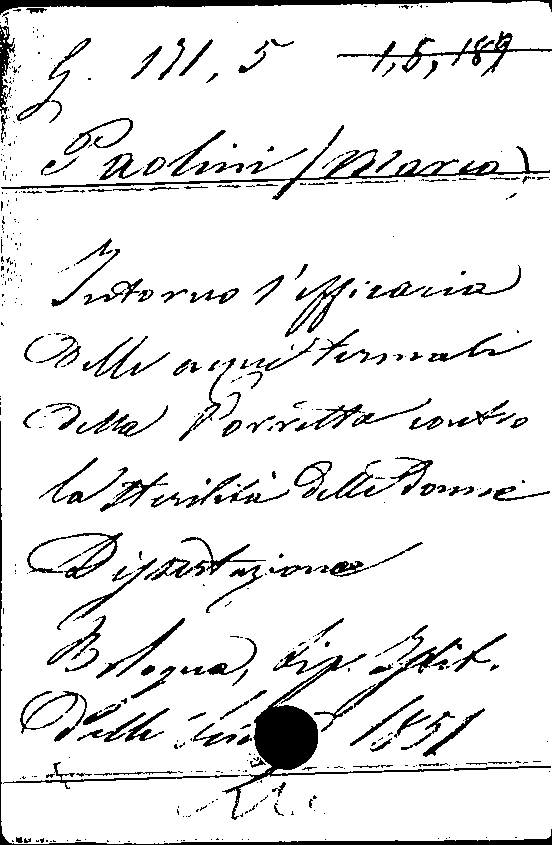 G. 171, 5 1, 8, 189
Paolini (Marco)
Intorno l'efficacia
delle acque termali
della Porretta contro
la sterilità delle Donne
Dissertazione
Bologna, tip. Istit.
delle 1851